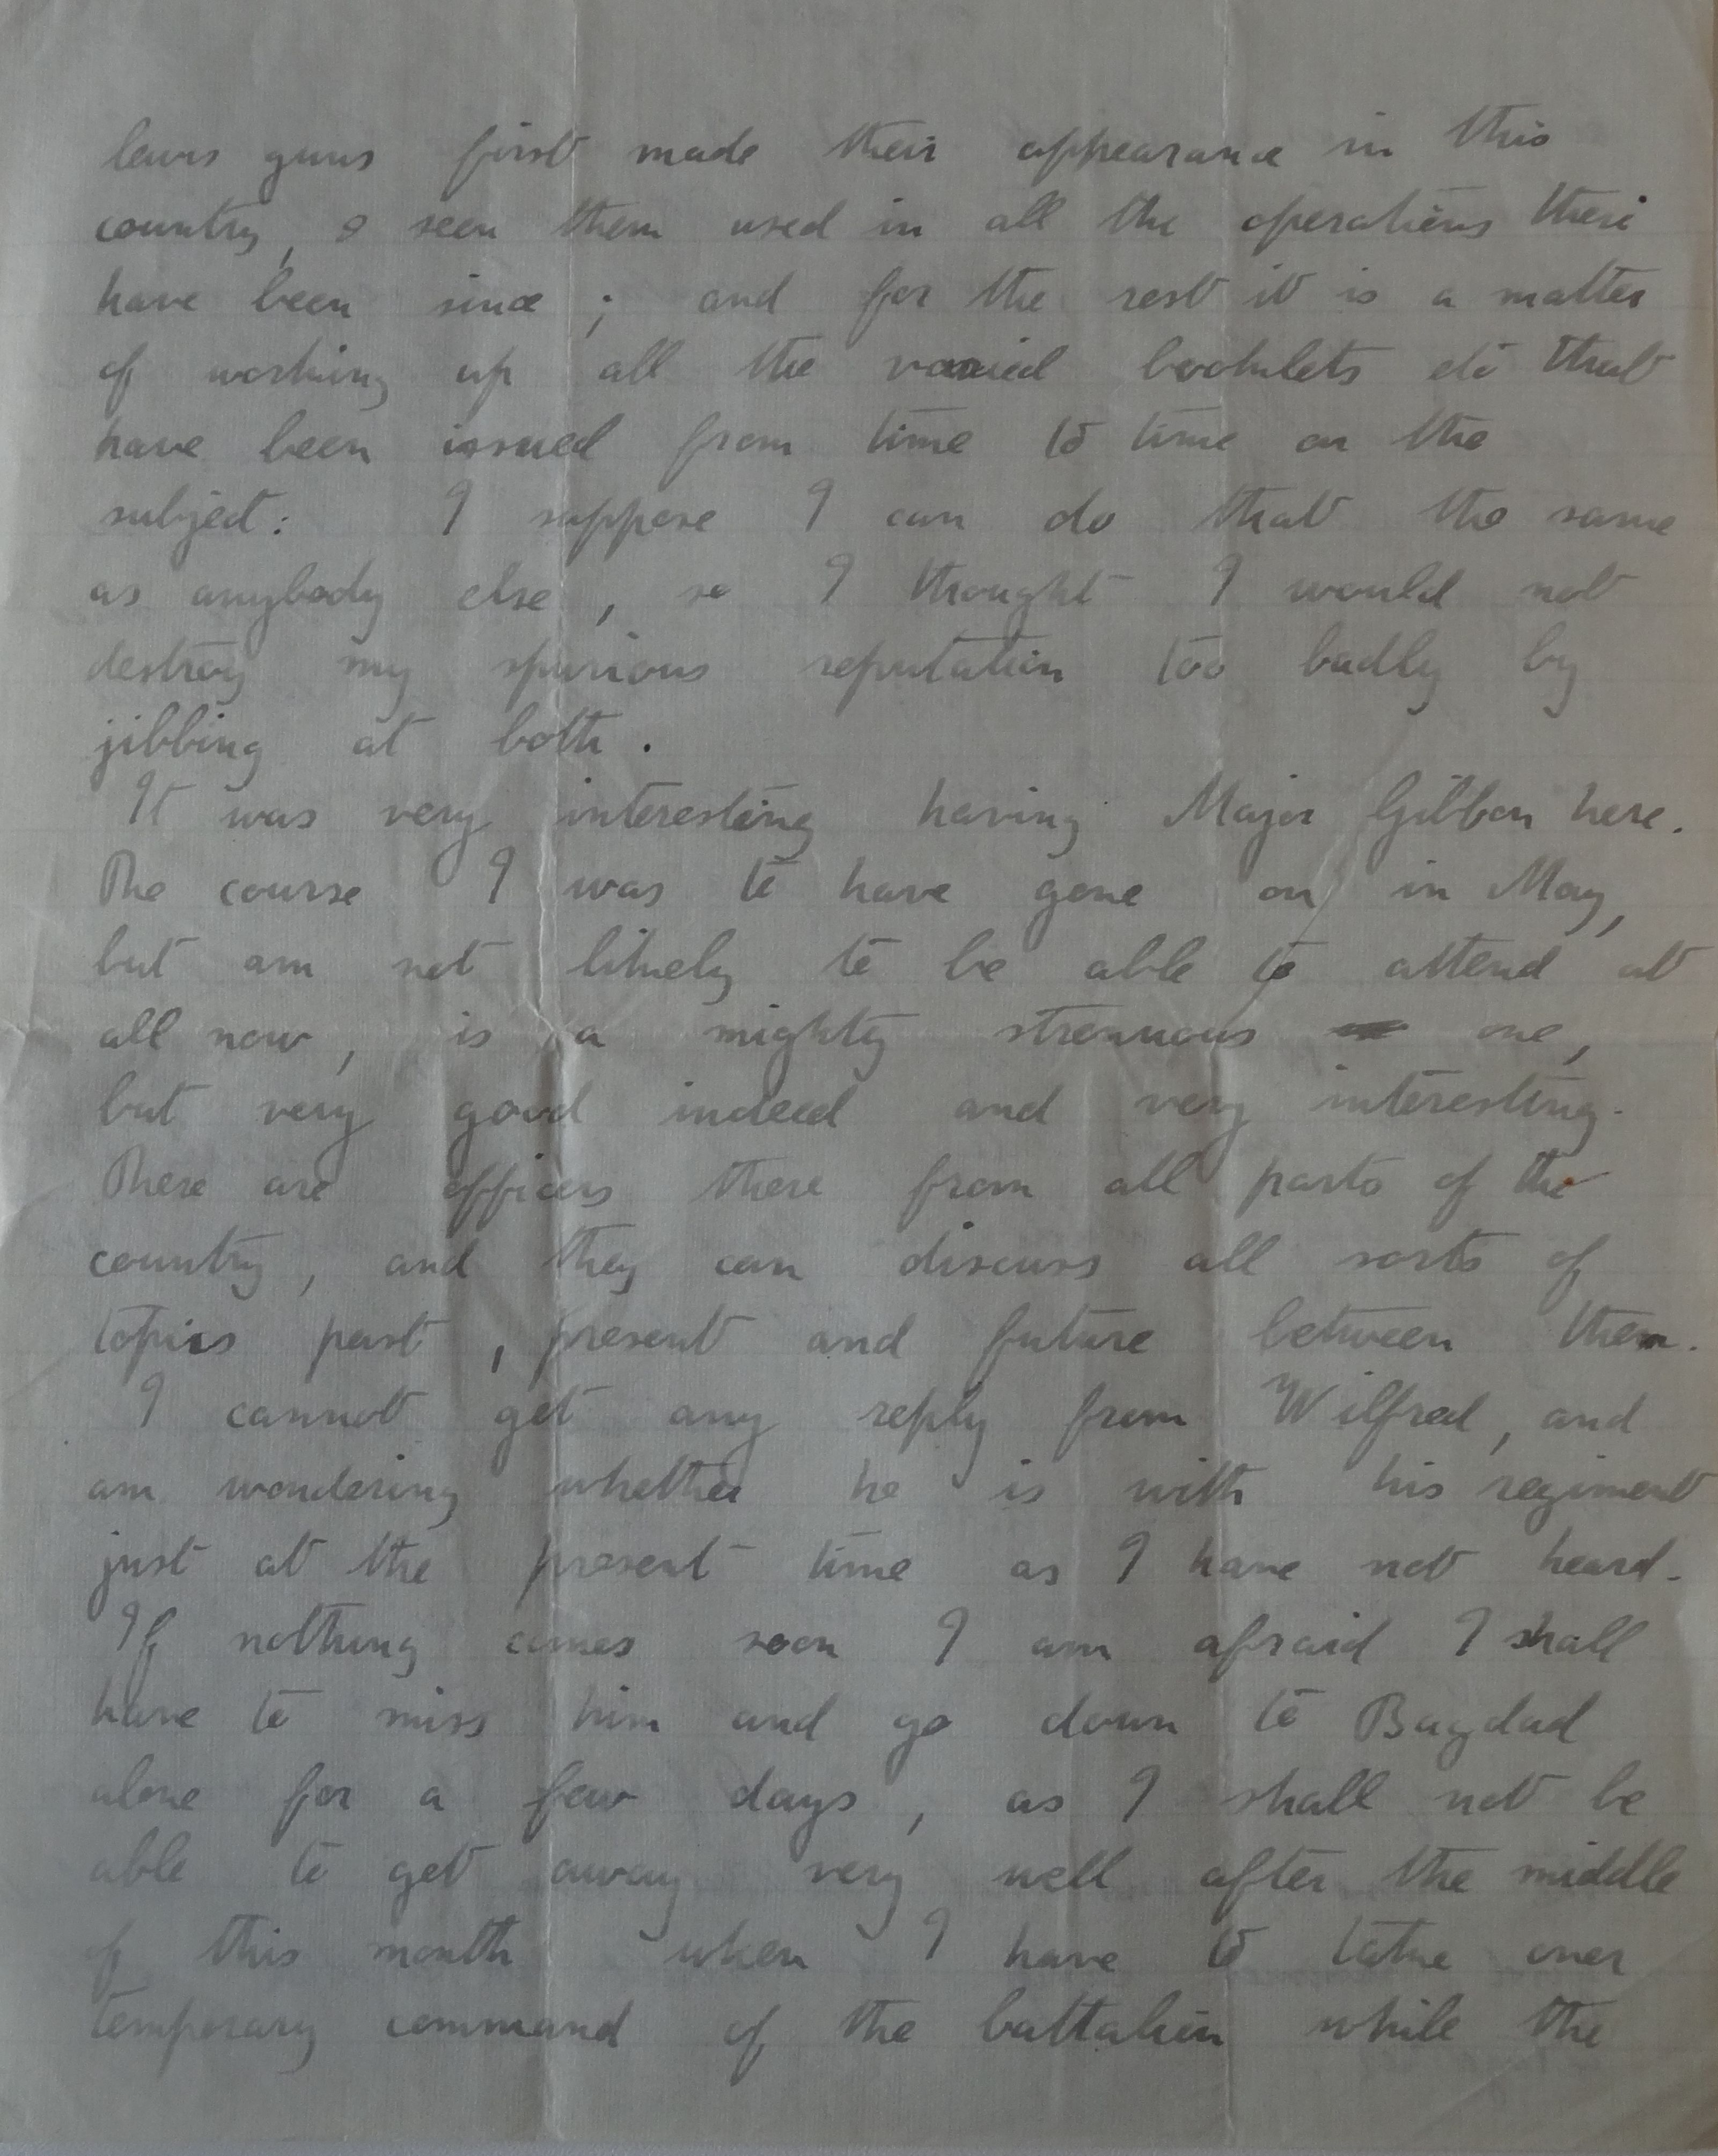 lewis guns first made their appearance in this
country, & seen them used in all the operations there
have been since ; and for the rest it is a matter
of working up all the varied booklets etc that
have been issued from time to time on the
subject: I suppose I can do that the same
as anybody else, so I thought I would not
destroy my spurious reputation too badly by
jibbing at both.
It was very interesting having Major Gibbon here.
The course I was to have gone on in May,
but am not likely to be able to attend at
all now, is a mighty strenuous one,
but very good indeed and very interesting.
There are officers there from all parts of the
country, and they can discuss all sorts of
topics past, present and future between them.
I cannot get any reply from Wilfred, and
am wondering whether he is with his regiment
just at the present time as I have not heard.
If nothing comes soon I am afraid I shall
have to miss him and go down to Bagdad
alone for a few days, as I shall not be
able to get away very well after the middle
of this month when I have to take over
temporary command of the battalion while the